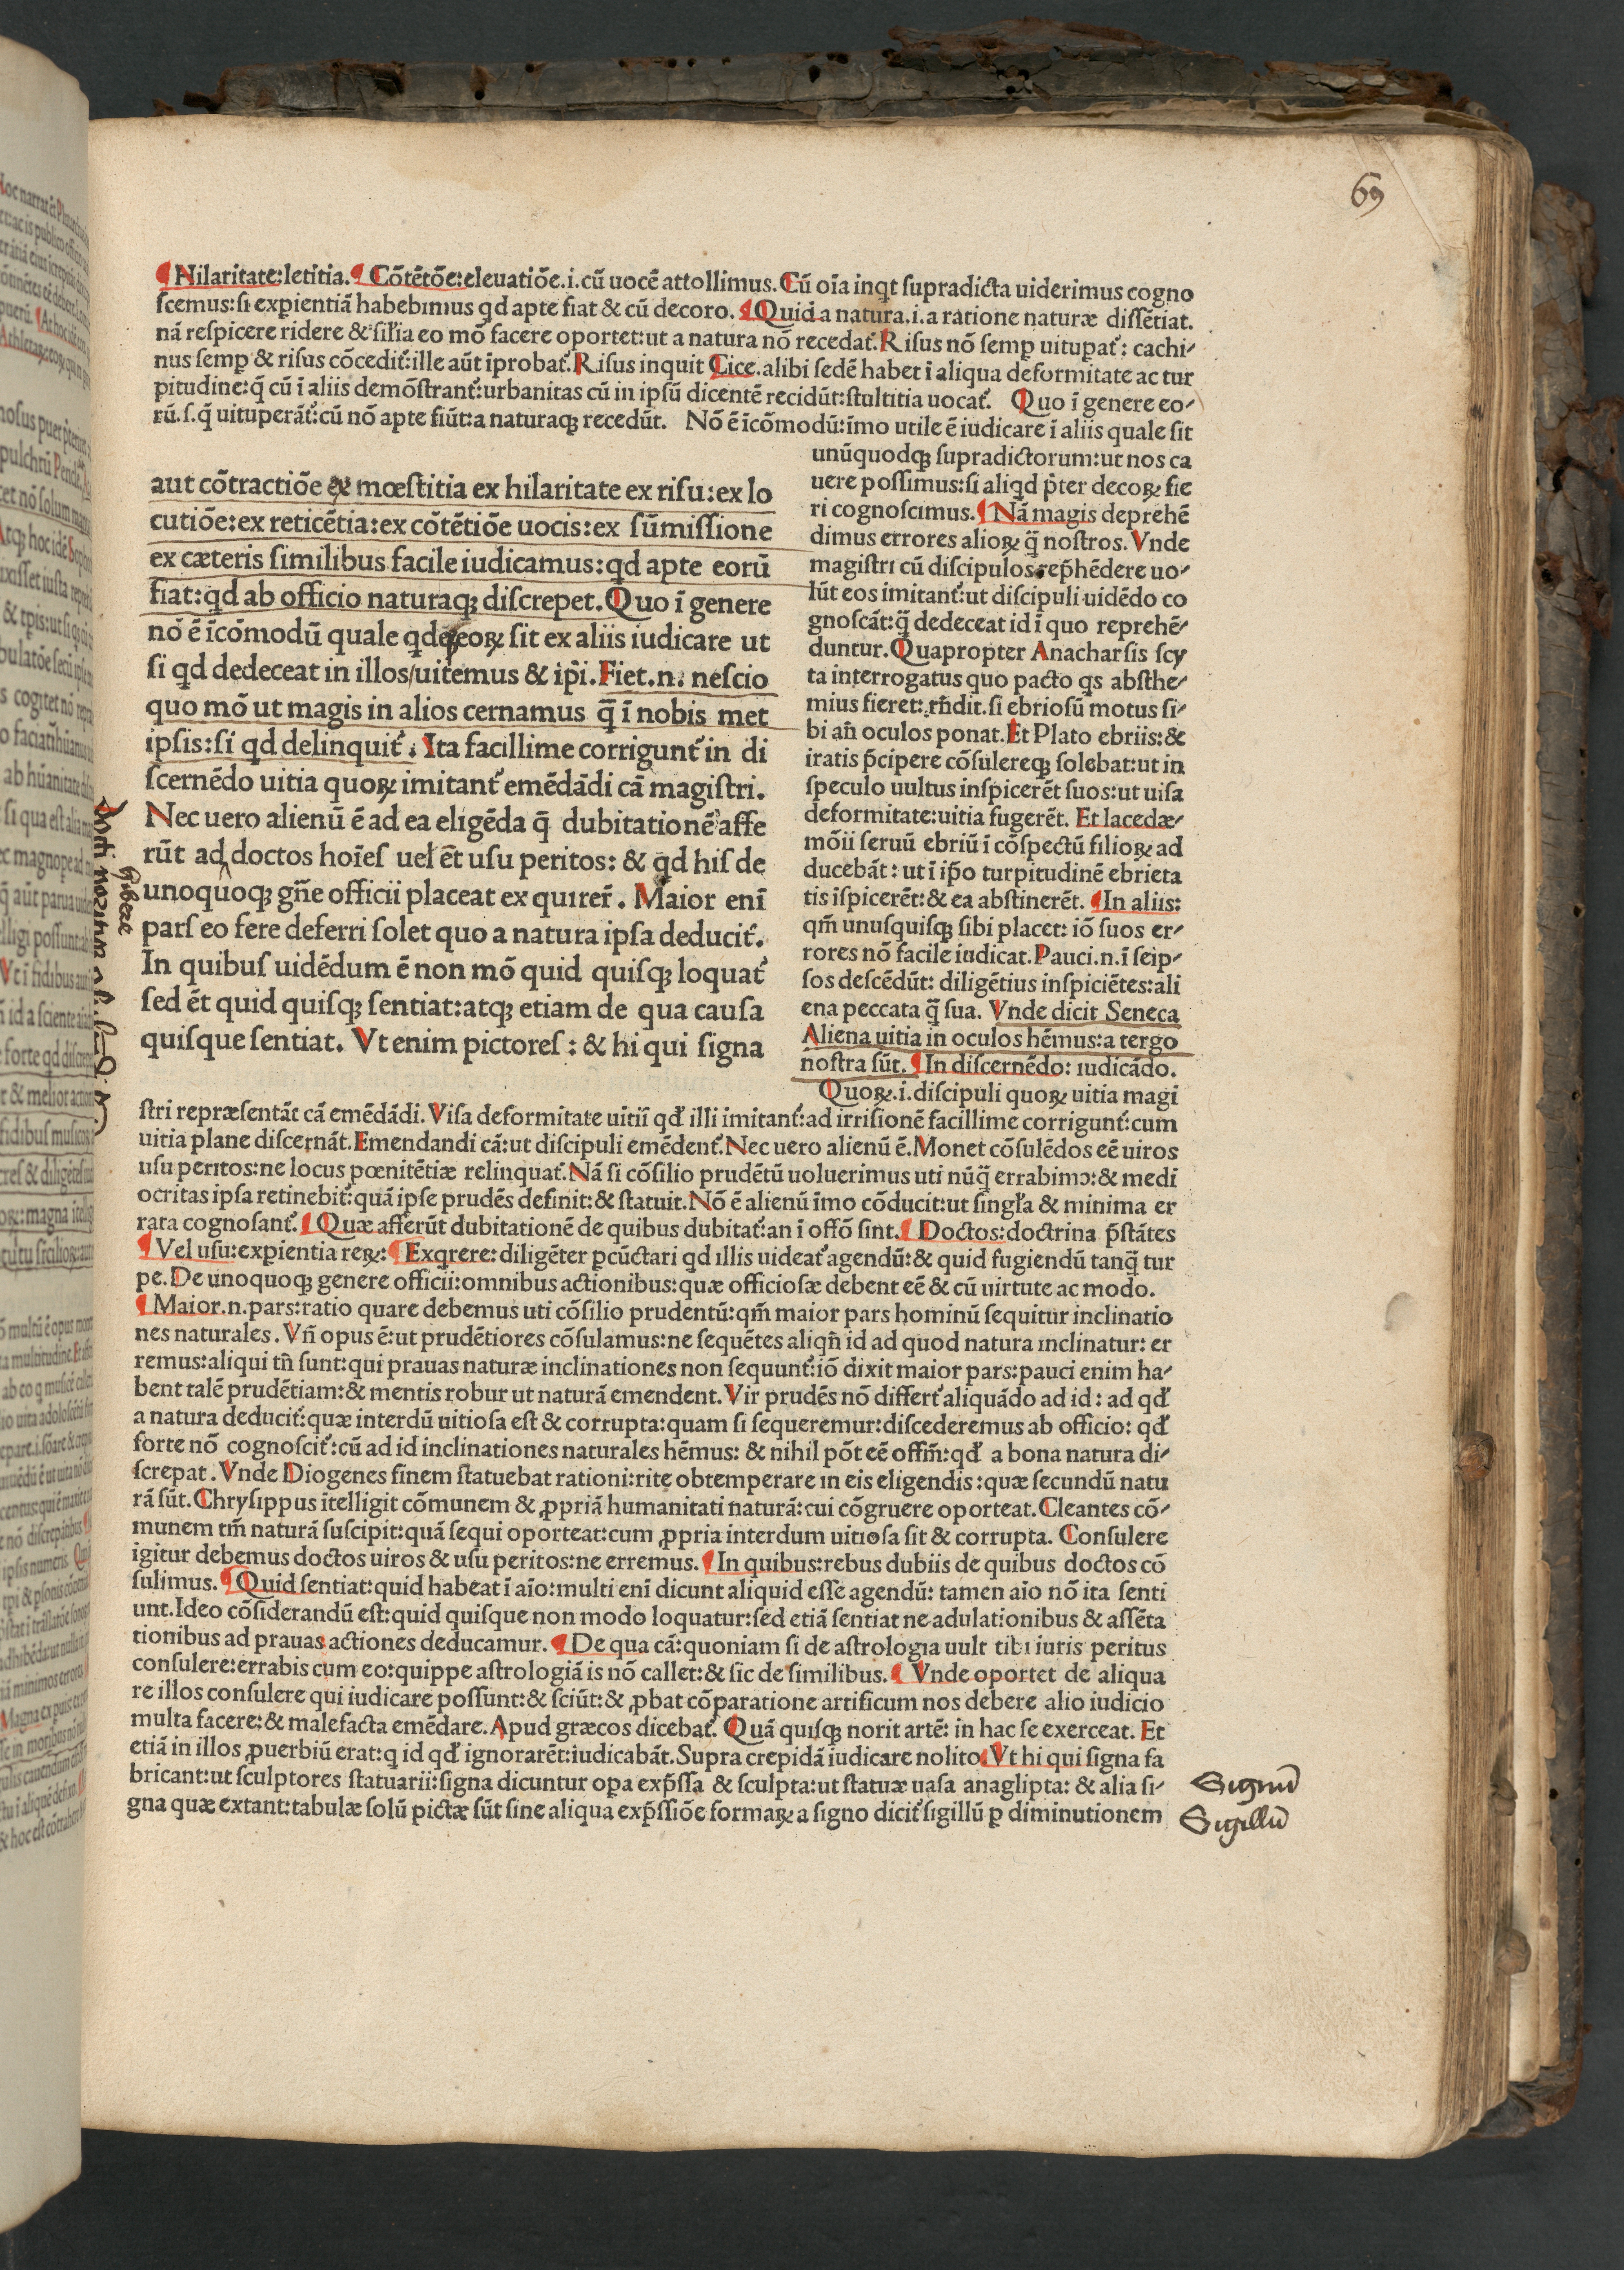 69
¶ Hilaritate:letitia.¶ Cōtētōe:eleuatiōe.i.cū uocē attollimus.Cū oīa inqt supradicta uiderimus cogno
scemus:si exꝑientiā habebimus qd apte fiat & cū decoro.¶ Quid a natura.i.a ratione naturæ dissētiat.
nā respicere ridere & sil'ia eo mō facere oportet:ut a natura nō recedat᷑.Risus nō semꝑ uituꝑat᷑: cachi-
nus semꝑ & risus cōcedit᷑:ille aūt īprobat᷑.Risus inquit Cice.alibi sedē habet ī aliqua deformitate ac tur
pitudine:q̄ cū ī aliis demōstrant᷑:urbanitas cū in ipsū dicentē recidūt:stultitia uocat᷑. Quo ī genere eo-
rū.s.q̄ uituperāt᷑:cū nō apte fiūt:a naturaqꝫ recedūt. Nō ē īcōmodū:īmo utile ē iudicare ī aliis quale sit
aut cōtractiōe ex mœstitia ex hilaritate ex risu:ex lo
cutiōe:ex reticētia:ex cōtētiōe uocis:ex sūmissione
ex cæteris similibus facile iudicamus:qd apte eorū
fiat:qd ab officio naturaqꝫ discrepet.Quo ī genere
nō ē īcōmodū quale qdqꝫ eoꝝ sit ex aliis iudicare ut
si qd dedeceat in illos/uitemus & ip̄i.Fiet.n. nescio
quo mō ut magis in alios cernamus q̄ ī nobis met
ipsis:si qd delinquit᷑. Ita facillime corrigunt᷑ in di
scernēdo uitia quoꝝ imitant᷑ emēdādi cā magistri.
Nec uero alienū ē ad ea eligēda q̄ dubitationē affe
rūt ad doctos hoīes uel ēt usu peritos: & qd his de
unoquoqꝫ gn̄e officii placeat ex quirer̄. Maior enī
pars eo fere deferri solet quo a natura ipsa deducit᷑.
In quibus uidēdum ē non mō quid quisqꝫ loquat᷑
sed ēt quid quisqꝫ sentiat:atqꝫ etiam de qua causa
quisque sentiat. Vt enim pictores : & hi qui signa
unūquodqꝫ supradictorum:ut nos ca
uere possimus:si aliqd p̄ter decoꝝ fie
ri cognoscimus.¶ Nā magis deprehē
dimus errores alioꝝ q̄ nostros.Vnde
magistri cū discipulos rep̄hēdere uo-
lūt eos imitant᷑:ut discipuli uidēdo co
gnoscāt:q̄ dedeceat id ī quo reprehē-
duntur.Quapropter Anacharsis scy
ta interrogatus quo pacto qs absthe-
mius fieret: rn̄dit.si ebriosū motus si-
bi an̄ oculos ponat.Et Plato ebriis:&
iratis p̄cipere cōsulereqꝫ solebat:ut in
speculo uultus inspicerēt suos:ut uisa
deformitate:uitia fugerēt. Et lacedæ-
mōii seruū ebriū ī cōspectū filioꝝ ad
ducebāt : ut ī ip̄o turpitudinē ebrieta
tis īspicerēt:& ea abstinerēt. ¶ In aliis:
qm̄ unusquisqꝫ sibi placet: iō suos er-
rores nō facile iudicat.Pauci.n.ī seip-
sos descēdūt: diligētius inspiciētes:ali
ena peccata q̄ sua. Vnde dicit Seneca
Aliena uitia in oculos hēmus:a tergo
nostra sūt.¶ In discernēdo: iudicādo.
Quoꝝ.i.discipuli quoꝝ uitia magi
stri repræsentāt cā emēdādi.Visa deformitate uitiī qd' illi imitant᷑:ad irrisionē facillime corrigunt᷑:cum
uitia plane discernāt.Emendandi cā:ut discipuli emēdent᷑.Nec uero alienū ē.Monet cōsulēdos eē uiros
usu peritos:ne locus pœnitētiæ relinquat᷑.Nā si cōsilio prudētū uoluerimus uti nūq̄ errabimꝰ:& medi
ocritas ipsa retinebit᷑:quā ipse prudēs definit:& statuit.Nō ē alienū īmo cōducit:ut singl'a & minima er
rata cognosant᷑.¶ Quæ afferūt dubitationē de quibus dubitat᷑:an ī offō sint.¶ Doctos:doctrina p̄stātes
¶ Vel usu:exꝑientia reꝝ:¶ Exqrere:diligēter ꝑcūctari qd illis uideat᷑ agendū:& quid fugiendū tanq̄ tur
pe.De unoquoqꝫ genere officii:omnibus actionibus:quæ officiosæ debent eē & cū uirtute ac modo.
¶ Maior.n.pars:ratio quare debemus uti cōsilio prudentū:qm̄ maior pars hominū sequitur inclinatio
nes naturales.Vn̄ opus ē:ut prudētiores cōsulamus:ne sequētes aliqn̄ id ad quod natura inclinatur: er
remus:aliqui tn̄ sunt:qui prauas naturæ inclinationes non sequunt᷑:iō dixit maior pars:pauci enim ha-
bent talē prudētiam:& mentis robur ut naturā emendent.Vir prudēs nō differt᷑ aliquādo ad id: ad qd'
a natura deducit᷑:quæ interdū uitiosa est & corrupta:quam si sequeremur:discederemus ab officio: qd'
forte nō cognoscit᷑:cū ad id inclinationes naturales hēmus: & nihil pōt eē offm̄:qd' a bona natura di-
screpat.Vnde Diogenes finem statuebat rationi:rite obtemperare in eis eligendis:quæ secundū natu
rā sūt.Chrysippus ītelligit cōmunem & ꝓpriā humanitati naturā:cui cōgruere oporteat.Cleantes cō-
munem tm̄ naturā suscipit:quā sequi oporteat:cum ꝓpria interdum uitiosa sit & corrupta. Consulere
igitur debemus doctos uiros & usu peritos:ne erremus.¶ In quibus:rebus dubiis de quibus doctos cō
sulimus.¶ Quid sentiat:quid habeat ī aīo:multi enī dicunt aliquid esse agendū: tamen aīo nō ita senti
unt.Ideo cōsiderandū est:quid quisque non modo loquatur:sed etiā sentiat ne adulationibus & assēta
tionibus ad prauas actiones deducamur.¶ De qua cā:quoniam si de astrologia uult tibi iuris peritus
consulere:errabis cum eo:quippe astrologiā is nō callet:& sic de similibus.¶ Vnde oportet de aliqua
re illos consulere qui iudicare possunt:& sciūt:& ꝓbat cōparatione artificum nos debere alio iudicio
multa facere:& malefacta emēdare.Apud græcos dicebat᷑. Quā quisqꝫ norit artē: in hac se exerceat. Et
etiā in illos ꝓuerbiū erat:q id qd' ignorarēt:iudicabāt.Supra crepidā iudicare nolito.Vt hi qui signa fa
bricant:ut sculptores statuarii:signa dicuntur oꝑa exp̄ssa & sculpta:ut statuæ uasa anaglipta: & alia si-
gna quæ extant:tabulæ solū pictæ sūt sine aliqua exp̄ssiōe formaꝝ a signo dicit᷑ sigillū ꝑ diminutionem
Signū
Sigillū